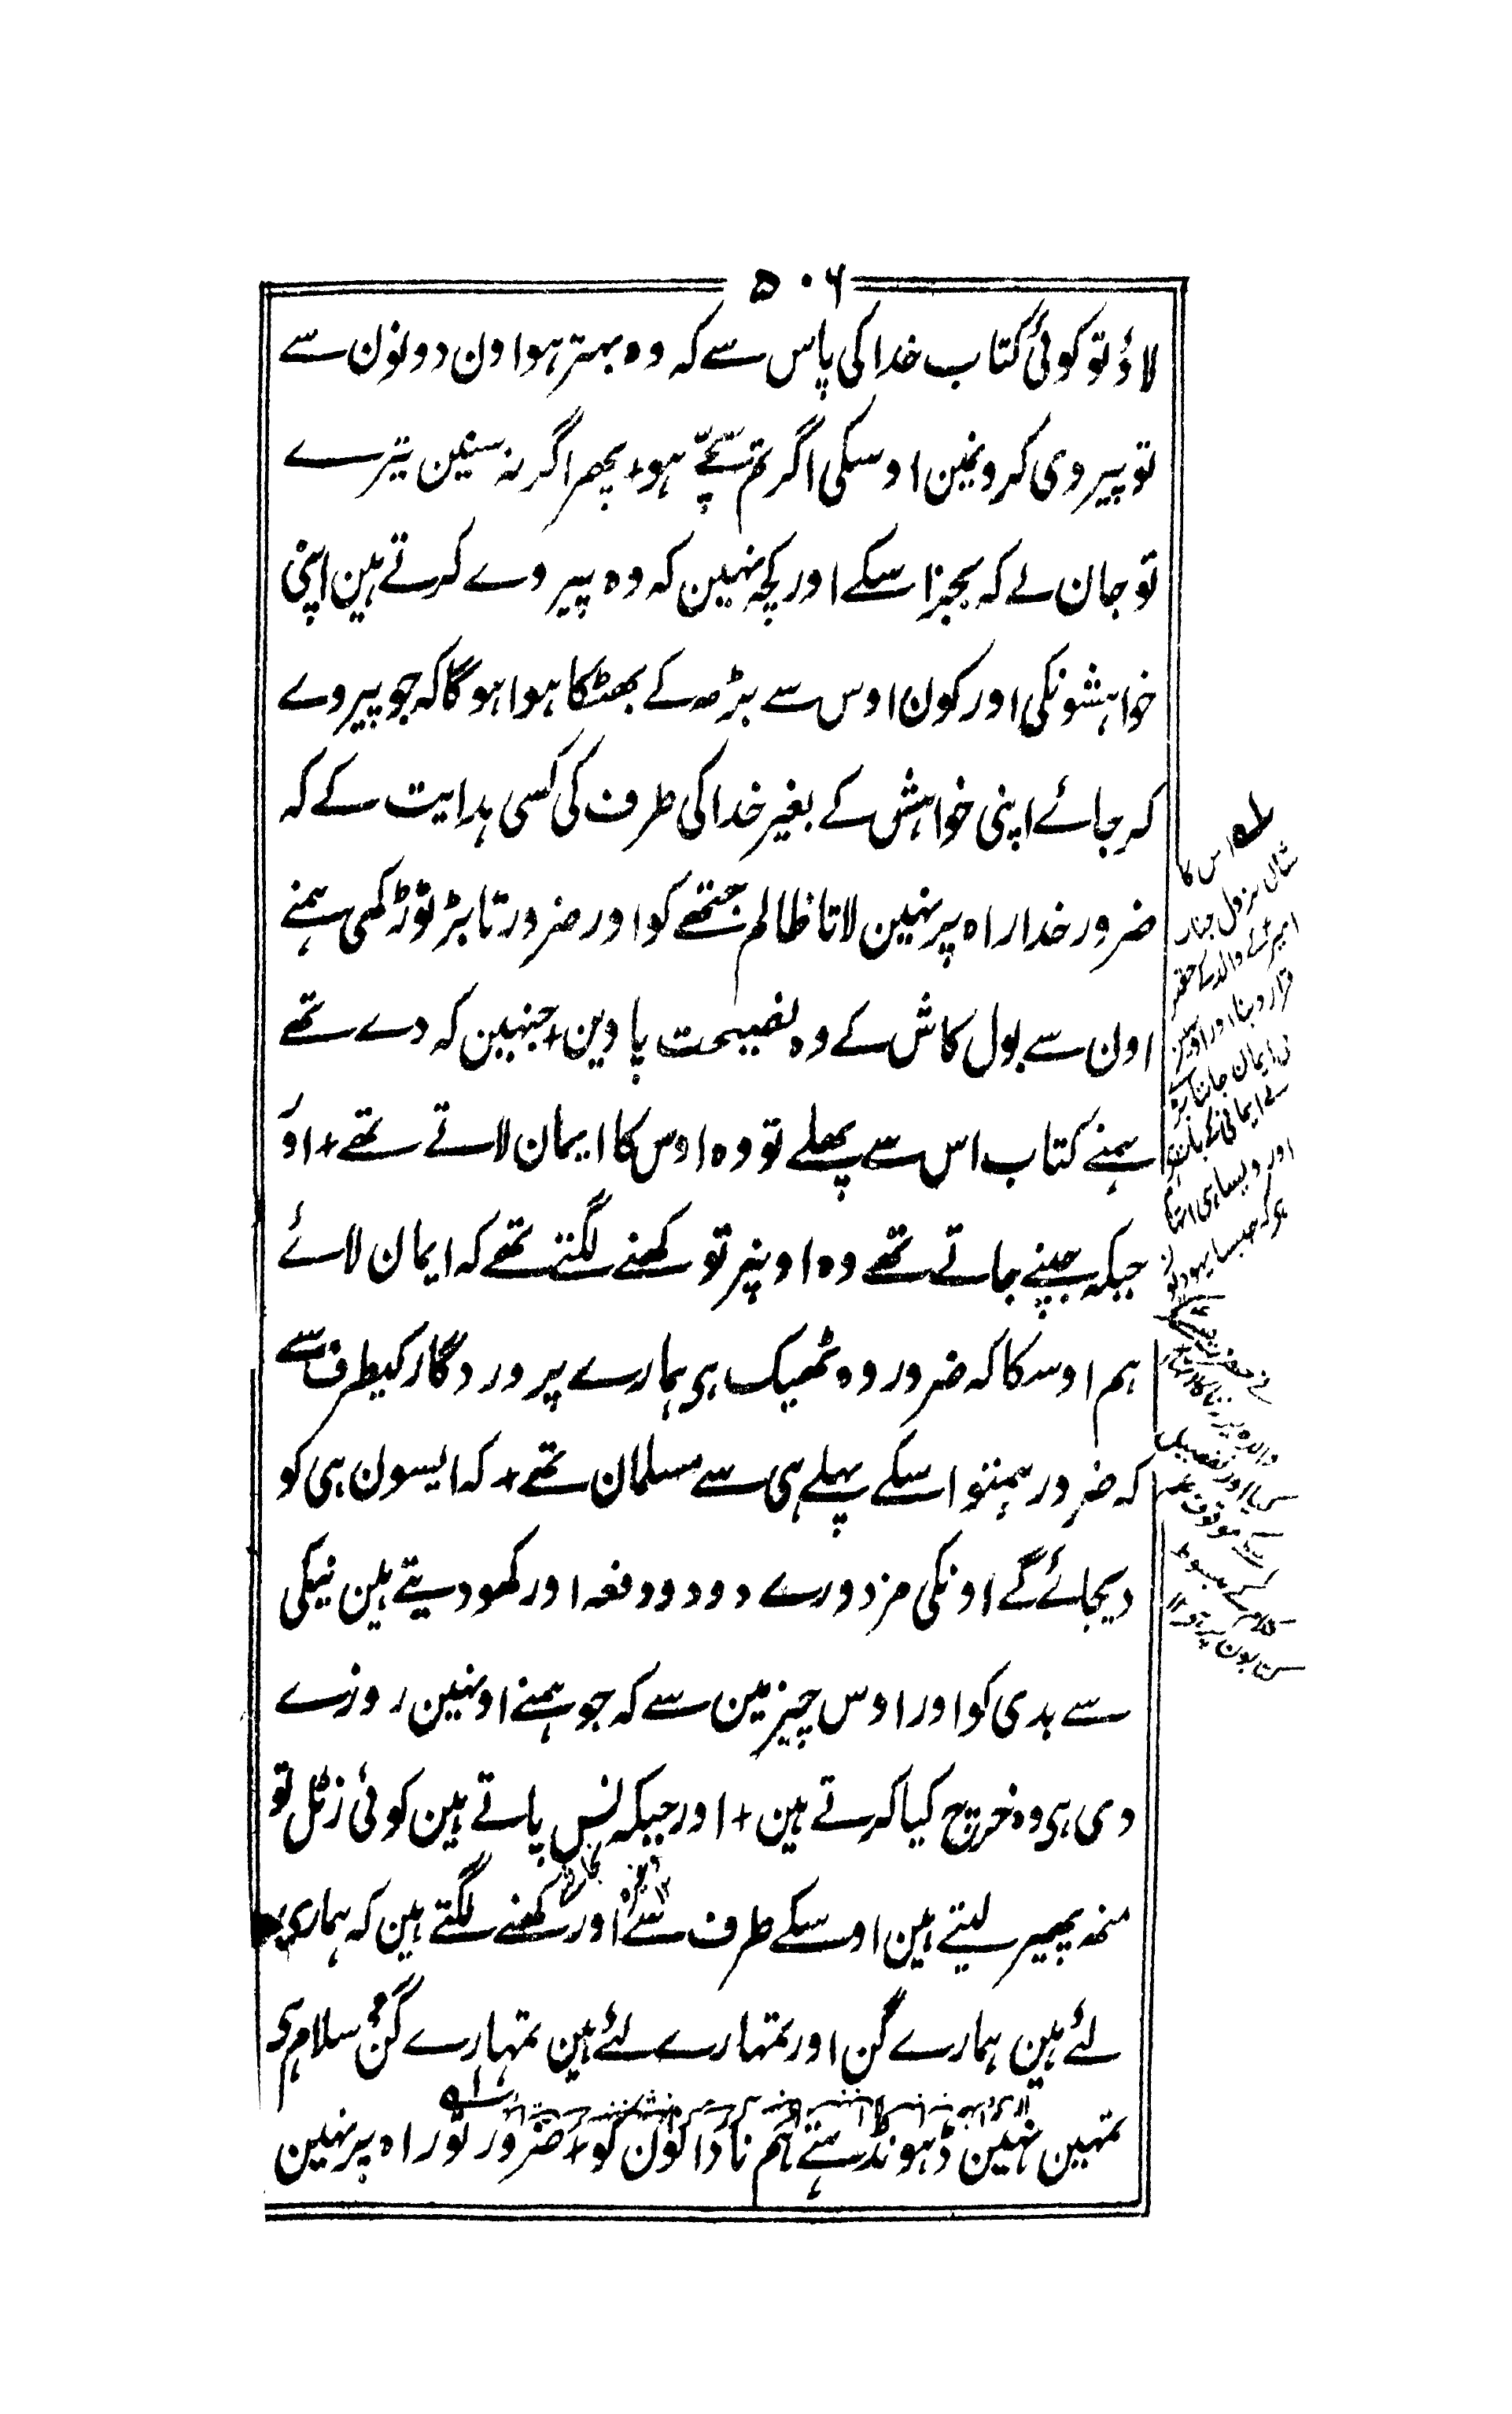 ۵۰۶
لاؤ تو کوئی کتاب خدا کی پاس سے کہ وہ بہتر ہو اون دونون سے
تو پیروی کرو نمین اوسکی اگر تم سچّے ہو + پھر اگر نہ سنین تیرے
تو جان لے کہ بجز اسکے اور کچہ نہین کہ وہ پیروے کرتے ہین اپنی
خواہشونکی اور کون اوس سے بڑھ کے بھٹکا ہوا ہو گا کہ جو پیروے
کر جائے اپنی خواہش کے بغیر خدا کی طرف کی کسی ہدایت کے کہ
ضرور خدا راہ پر نہین لاتا ظالم جتھے کو اور ضرور تا بڑ توڑ کہی ہمنے
اون سے بول کاش کے وہ نصیحت پاوین + جنہین کہ دے تھے
ہمنے کتاب اس سے پھلے تو وہ اوس کا ایمان لاتے تھے + اور
جبکہ جپنے جاتے تھے وہ اونپر تو کھنے لگتے تھے کہ ایمان لائے
ہم اوسکا کہ ضرور وہ ٹھیک ہی ہمارے پروردگار کیطرف سے
کہ ضرور ہمتو اسکے پہلے ہی سے مسلمان تھے + کہ ایسون ہی کو
دیجائے گے اونکی مزدورے دو دو دفعہ اور کھو دیتے ہین نیکی
سے بدی کو اور اوس چیز مین سے کہ جو ہمنے اونہین روزے
دی ہی وہ خرچ کیا کرتے ہین + اور جبکہ سن پاتے ہین کوئی زٹل تو
منھ پھیر لیتے ہین اوسکے طرف سے اور کھنے لگتے ہین کہ ہماری
لئے ہین ہمارے گن اور تمتہارے لئے ہین تمتہارے گن سلام ہی
تمہین نہین ڈہونڈہتے ہم نادانون کو + ضرور تو راہ پر نہین
اس کا
شان نزول جناب
امیر کے والد کے حق
قرار دینا اور اونہین